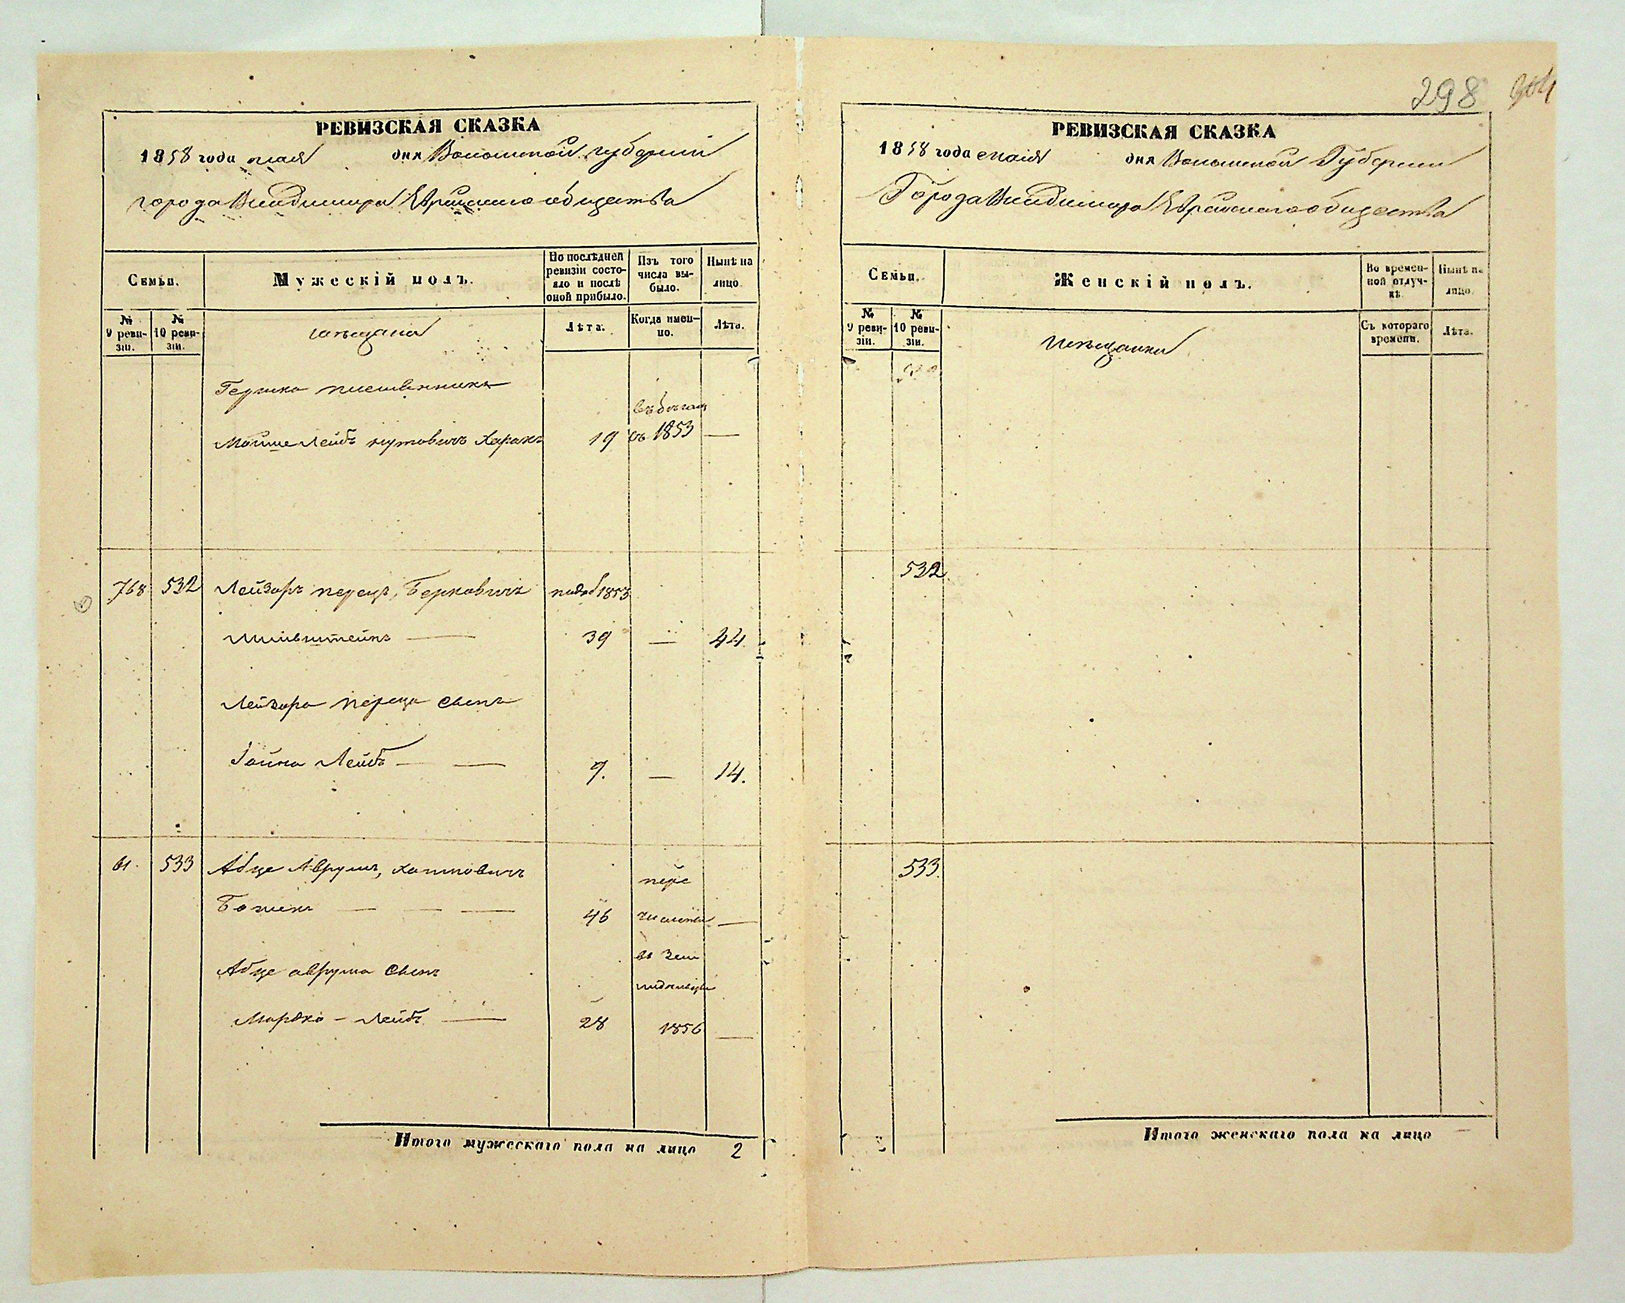 298
РЕВИЗСКАЯ СКАЗКА
1858 года мая дня Волынской губернии
города Владимира Еврейского общества
Семьи.
Мужескій полъ.
По послѣдней ревизіи состояло и послѣ оной прибыло.
Изъ того числа выбыло.
Нынѣ на лицо.
№ 9 ревизіи.
№ 10 ревизіи.
мещане
Лѣта.
Когда именно.
Лѣта.
Гершка племянникъ
въ бегах
Мойше Лейбъ Нутовичъ 19 съ 1853 —
768 532 Лейзоръ Перецъ Берковичъ 1853
Мильштейнъ — 39 — 44.
Лейзора Переца сынъ
Лейбъ — — 7. — 14.
61. 533 Абце Аврумъ, Хаимовичъ пере
46 численъ —
Абце Аврума сынъ въ зем
ледельцы
Мордко – Лейбъ — 28 1856 —
Итого мужескаго пола на лицо 2
РЕВИЗСКАЯ СКАЗКА
1858 года мая дня Волынской Губернии
Города Владимира Еврейского общества
Семьи.
Женскій полъ.
Во временной отлучкѣ
Нынѣ на лицо.
№ 9 ревизіи.
№ 10 ревизіи.
мещанки
Съ котораго времени.
Лѣта.
532
533.
Итого женскаго пола на лицо —